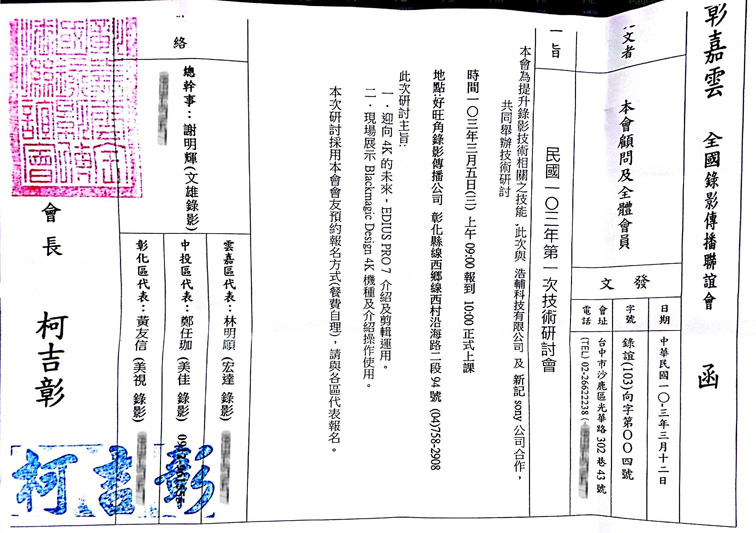 彰嘉雲 全國錄影傳播聯誼會 函
文者 本會顧問及全體會員
發文
日期 中華民國一○三年三月十二日
字號 錄誼(103)向字第○○四號
會址 台中市沙鹿區光華路302巷43號
電話 (TEL) 02-26622238 (
旨 民國一○三年第一次技術研討會
本會為提升錄影技術相關之技能,此次與 浩輔科技有限公司 及 新記sony公司合作,
共同舉辦技術研討
時間一○三年三月五日(三) 上午 09:00 報到 10:00 正式上課
地點:好旺角錄影傳播公司 彰化縣線西鄉線西村沿海路二段94號 (04)758-2908
此次研討主旨:
一.迎向4K的未來,EDIUS PRO 7 介紹及剪輯運用。
二.現場展示 Blackmagic Design 4K 機種及介紹操作使用。
本次研討採用本會會友預約報名方式(餐費自理),請與各區代表報名。
絡
總幹事:謝明輝(文雄錄影)
雲嘉區代表:林明順(宏達 錄影)
中投區代表:鄭任珈(美佳 錄影)
彰化區代表:黃友信(美視 錄影)
會長 柯吉彰
柯吉彰